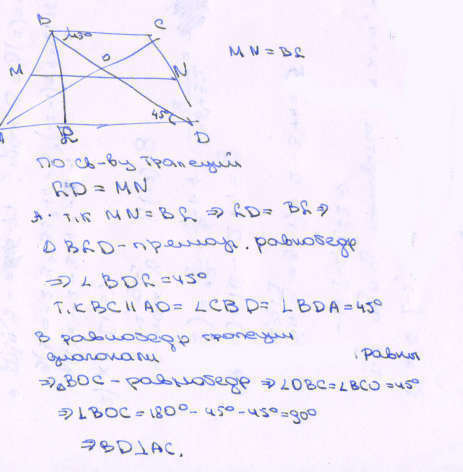 B
C
45°
O
M
N
MN = BL
A
L
45°
D
По св-ву трапеции
LD = MN
т.к MN = BL ⇒ LD = BL ⇒
Δ BLD - прямоуг. равнобедр
⇒ ∠BDL = 45°
Т.к BC || AD = ∠CBD = ∠BDA = 45°
В равнобедр трапеции
диагонали равны
⇒ ΔBOC - равнобедр ⇒ ∠OBC = ∠BCO = 45°
⇒ ∠BOC = 180° - 45° - 45° = 90°
⇒ BD ⊥ AC.